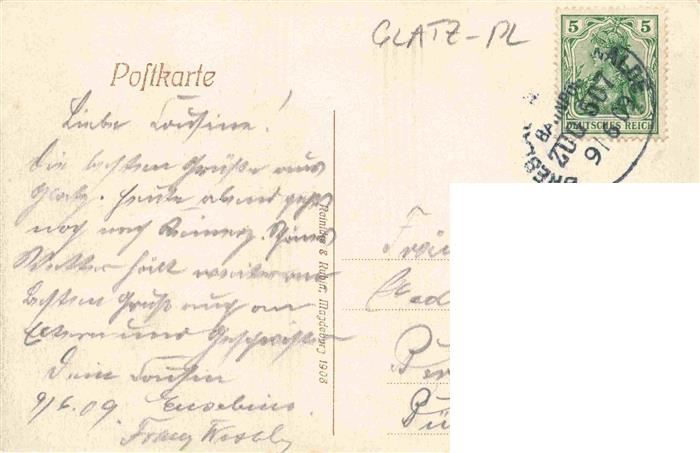 GLATZ-PL
5 5
DEUTSCHES REICH
BRESLAU
BAHNPOST
ZUG 507
9/6 09
Postkarte
Liebe Cousine!
Die besten Grüße aus
Glatz. Heute abend geht
noch nach Reinerz. Schönes
Wetter hält weiter an
Besten Gruß auch an
Eltern und Geschwister
Dein Cousin
9/6.09 Eusebius
Franz
Reinicke & Rubin, Magdeburg 1908